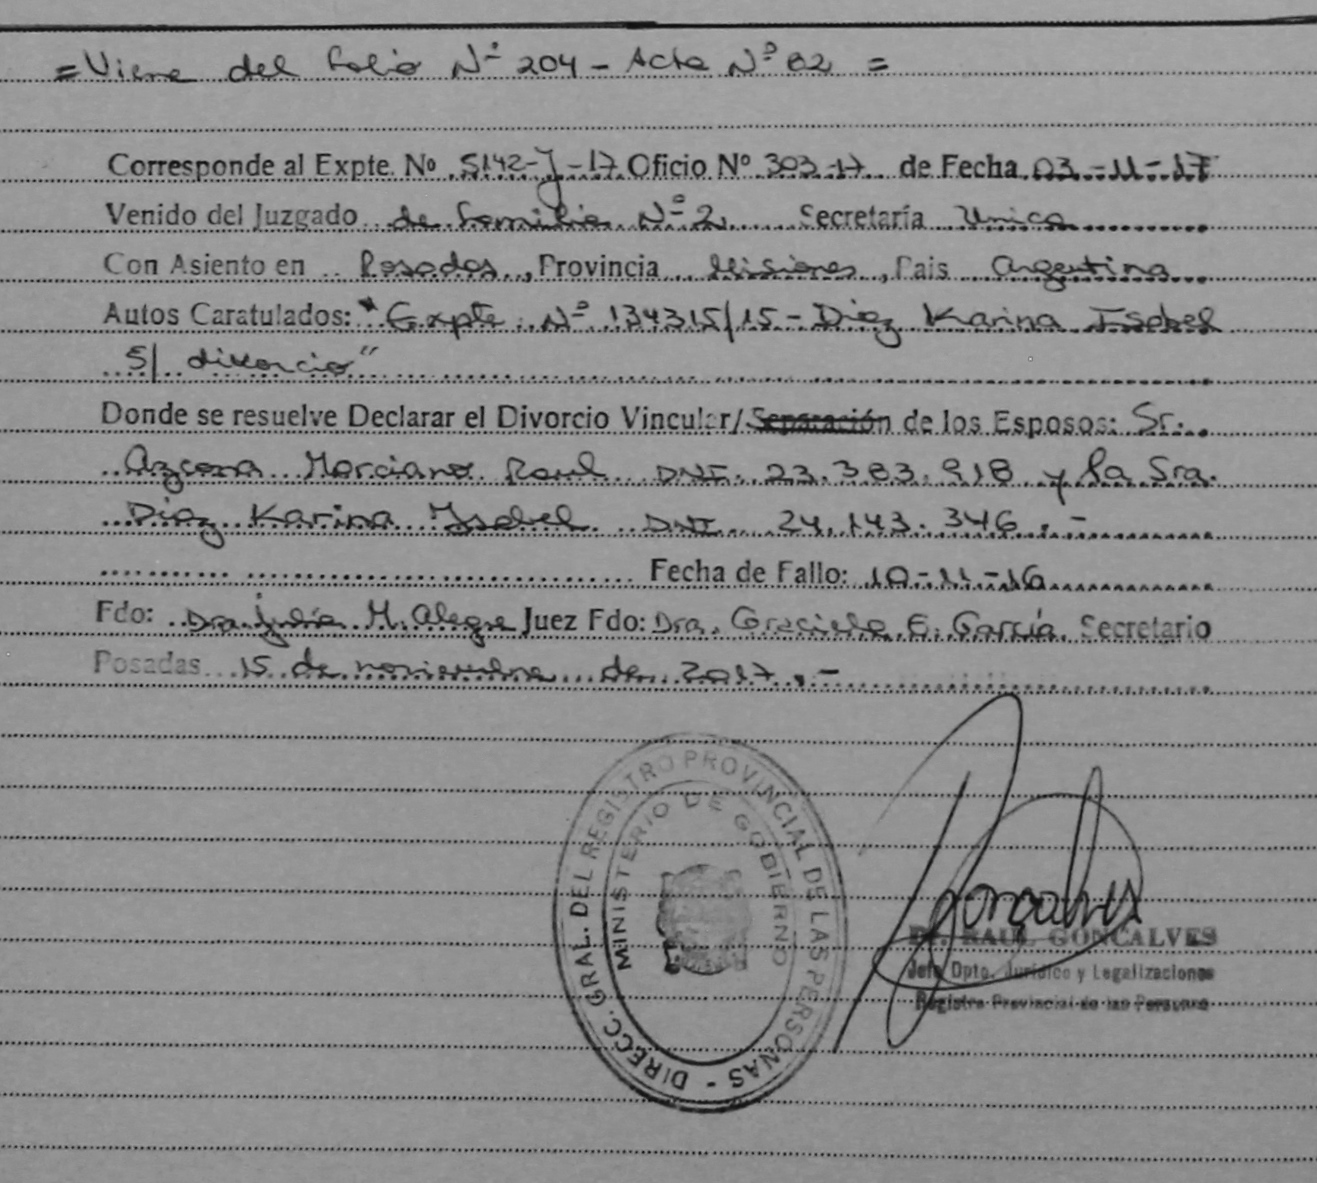 =Viene del folio Nº 204 - Acta Nº 82 =
Corresponde al Expte. Nº 5142-J-17 Oficio Nº 303-17 de Fecha 03-11-17
Venido del Juzgado de familia Nº 2 Secretaría Unica
Con Asiento en Posadas, Provincia Misiones, Pais Argentina
Autos Caratulados: "Expte Nº 134315/15 - Diaz Karina Isabel
S/ divorcio"
Donde se resuelve Declarar el Divorcio Vincular/Separación de los Esposos: Sr.
Azcona Marciano Raul DNI. 23.383.918 y la Sra.
Diaz Karina Ysabel DNI 24.143.346.-
Fecha de Fallo: 10-11-16
Fdo: Dra. Julia M. Alegre Juez Fdo: Dra. Graciela E. García. Secretario
Posadas 15 de noviembre de 2017.-
DIRECC. GRAL. DEL REGISTRO PROVINCIAL DE LAS PERSONAS -
MINISTERIO DE GOBIERNO
Goncalves
Dr. RAUL GONCALVES
Jefe Dpto. Jurídico y Legalizaciones
Registro Provincial de las Personas